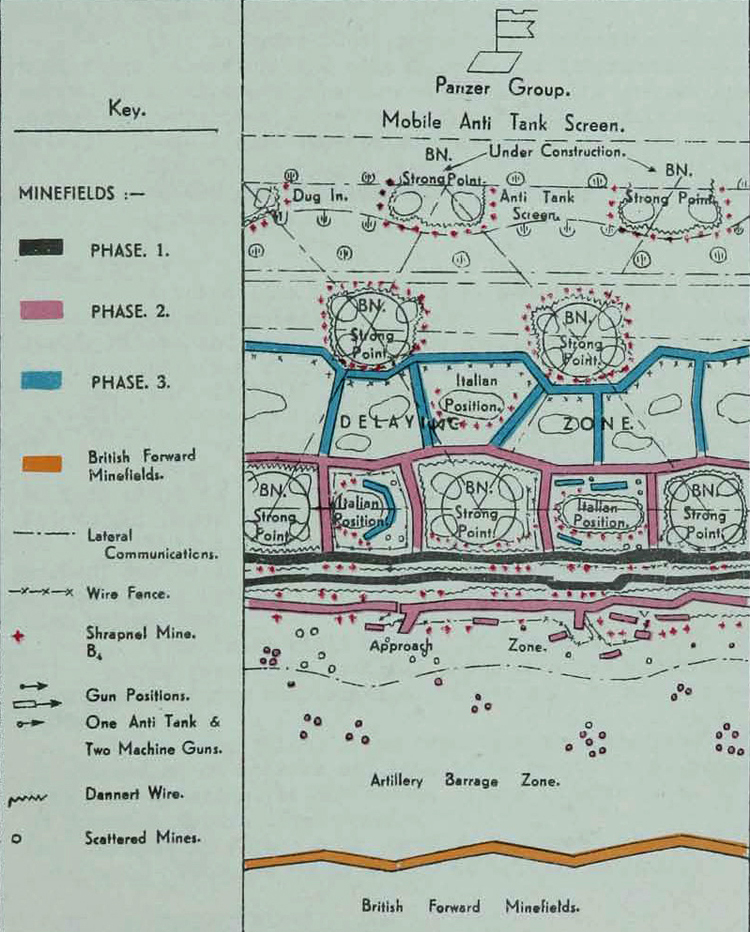 Key.
MINEFIELDS :—
PHASE. 1.
PHASE. 2.
PHASE. 3.
British Forward
Minefields.
Lateral
Communications.
Wire Fence.
Shrapnel Mine.
B4
Gun Positions.
One Anti Tank &
Two Machine Guns.
Dannert Wire.
Scattered Mines.
Panzer Group.
Mobile Anti Tank Screen.
BN.
Under Construction.
BN.
Strong Point.
Dug In.
Anti Tank
Screen.
Strong Point.
BN.
Strong
Point.
BN.
Strong
Point.
Italian
Position.
DELAYING ZONE.
BN.
Strong
Point.
Italian
Position.
BN.
Strong
Point.
Italian
Position.
BN.
Strong
Point.
Approach Zone.
Artillery Barrage Zone.
British Forward Minefields.